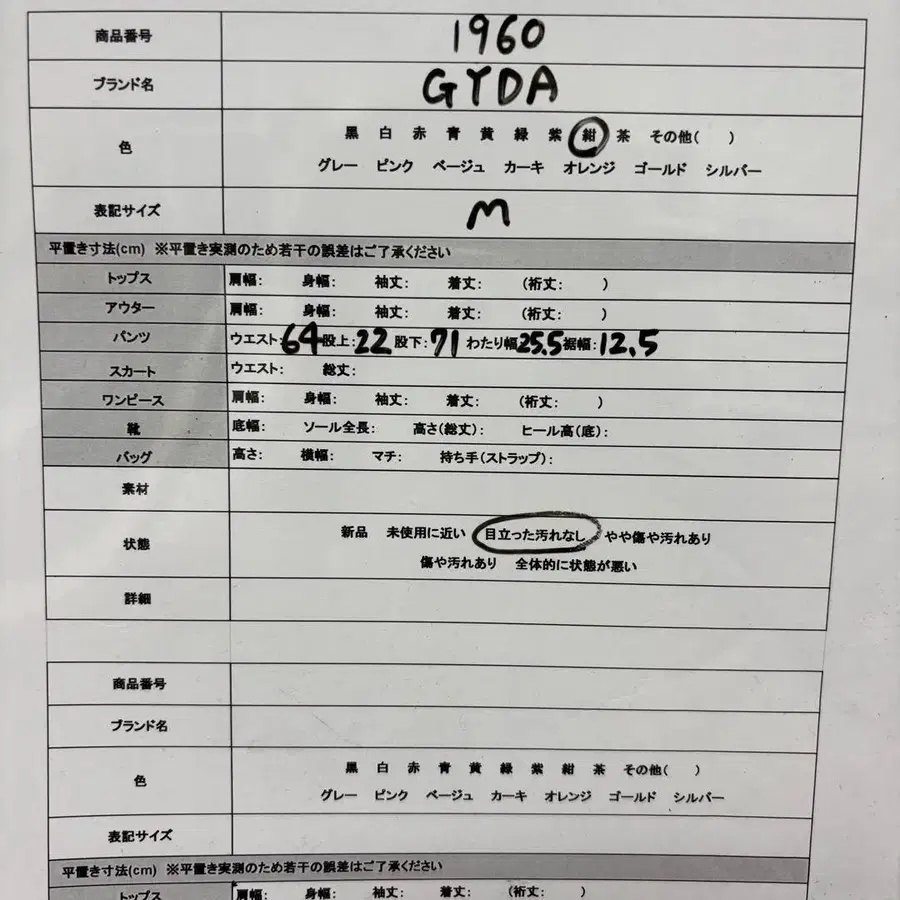 商品番号 1960
ブランド名 GYDA
色 黒 白 赤 青 黄 緑 紫 紺 茶 その他( )
グレー ピンク ベージュ カーキ オレンジ ゴールド シルバー
表記サイズ M
平置き寸法(cm) ※平置き実測のため若干の誤差はご了承ください
トップス 肩幅: 身幅: 袖丈: 着丈: (裄丈: )
アウター 肩幅: 身幅: 袖丈: 着丈: (裄丈: )
パンツ ウエスト:64 股上:22 股下:71 わたり幅25.5 裾幅:12.5
スカート ウエスト: 総丈:
ワンピース 肩幅: 身幅: 袖丈: 着丈: (裄丈: )
靴 底幅: ソール全長: 高さ(総丈): ヒール高(底):
バッグ 高さ: 横幅: マチ: 持ち手(ストラップ):
素材
状態 新品 未使用に近い 目立った汚れなし やや傷や汚れあり
傷や汚れあり 全体的に状態が悪い
詳細
商品番号
ブランド名
色 黒 白 赤 青 黄 緑 紫 紺 茶 その他( )
グレー ピンク ベージュ カーキ オレンジ ゴールド シルバー
表記サイズ
平置き寸法(cm) ※平置き実測のため若干の誤差はご了承ください
トップス 肩幅: 身幅: 袖丈: 着丈: (裄丈: )